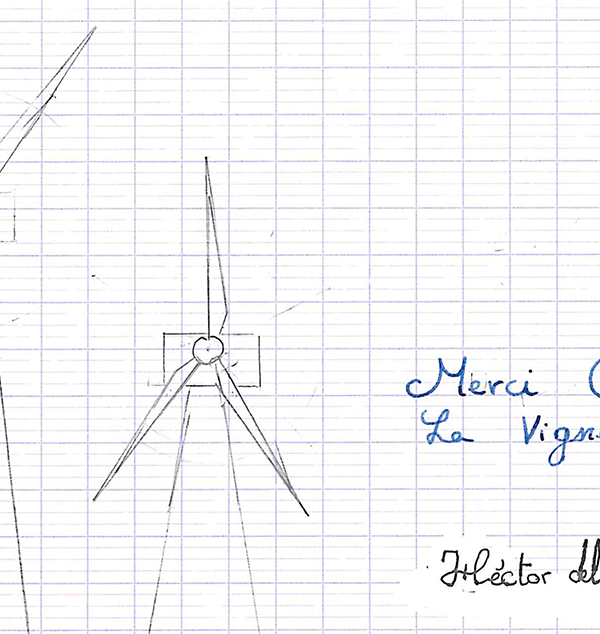 Merci
La Vign
Héctor del